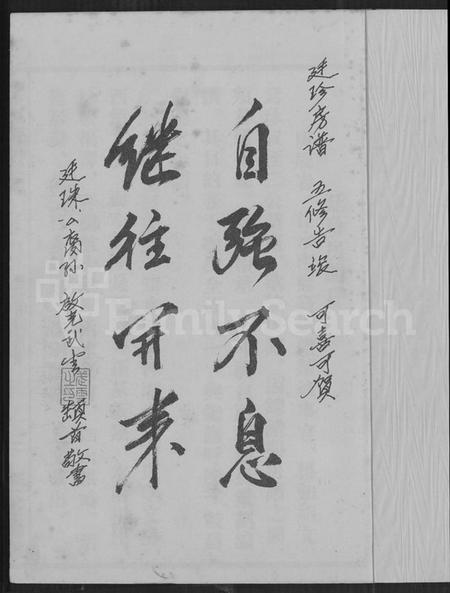 廷珍房谱 五修告竣 可喜可贺
自强不息
继往开来
廷珠公裔孙 頿首敬书
FamilySearch